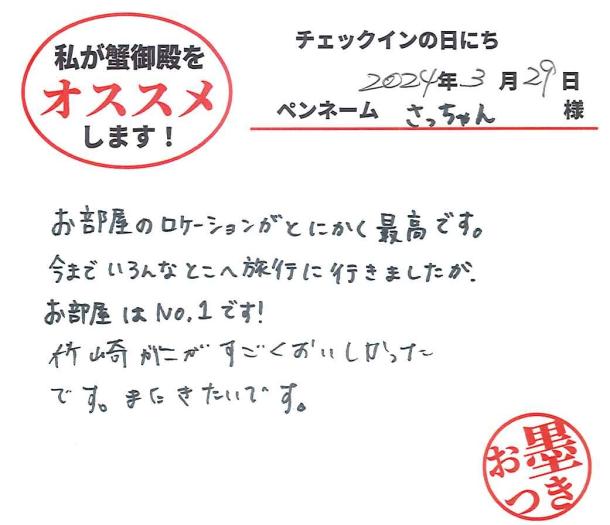 私が蟹御殿を
オススメ
します！
チェックインの日にち
2024年3月29日
ペンネーム さっちゃん 様
お部屋のロケーションがとにかく最高です。
今までいろんなとこへ旅行に行きましたが、
お部屋はNo.1です!
竹崎がにがすごくおいしかった
です。またきたいです。
お墨
つき